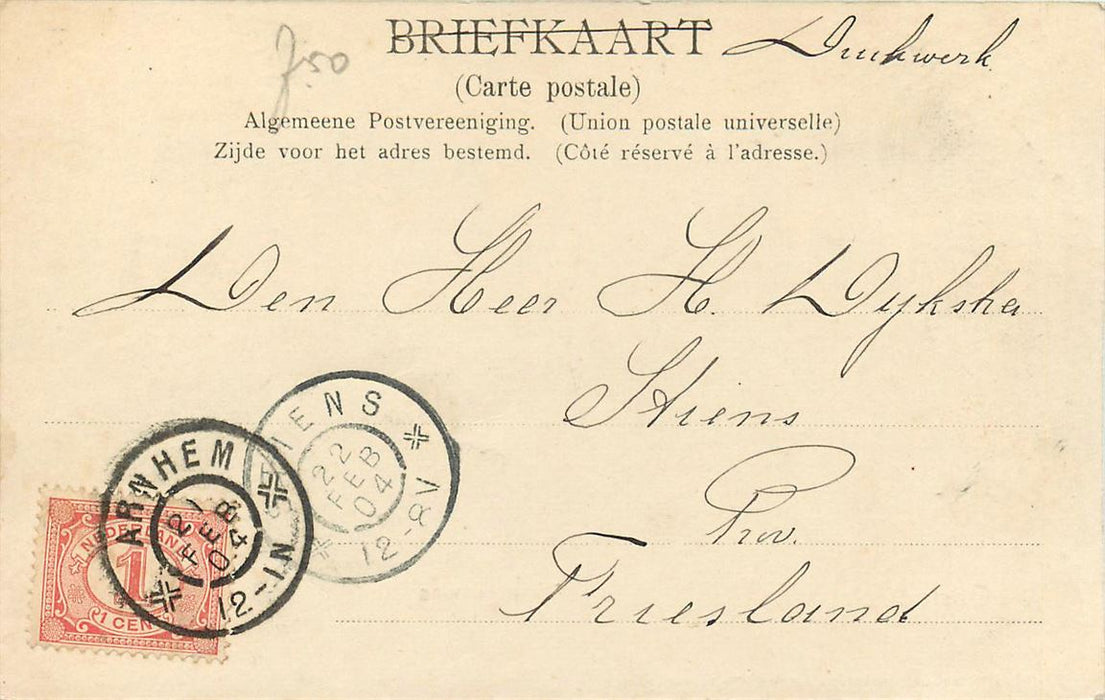 BRIEFKAART Drukwerk
750
(Carte postale)
Algemeene Postvereeniging. (Union postale universelle)
Zijde voor het adres bestemd. (Côté réservé à l'adresse.)
Den Heer H. Dykstra
Stiens
Prov.
Friesland
STIENS
22 FEB 04
12-8V
ARNHEM
21 FEB 04
12-1N
NEDERLAND
1
1 CENT